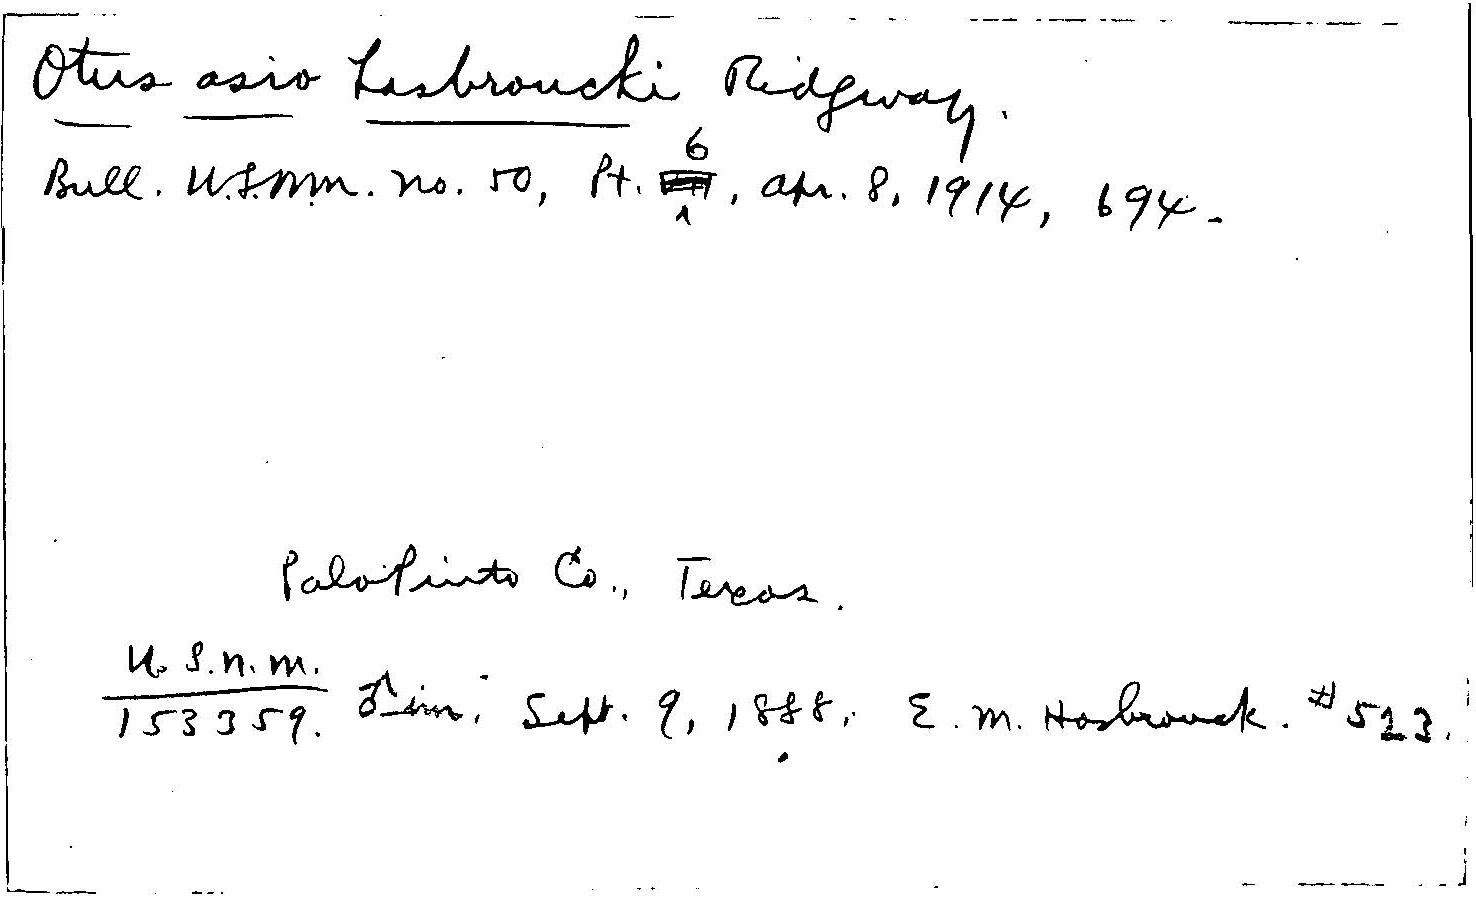 Otus asio hasbroucki Ridgway.
Bull. U.S.N.M. no. 50, Pt. 6, Apr. 8, 1914, 694.
Palo Pinto Co., Texas.
U.S.N.M.
153359. ♂ im; Sept. 9, 1888, E. M. Hasbrouck. #523.